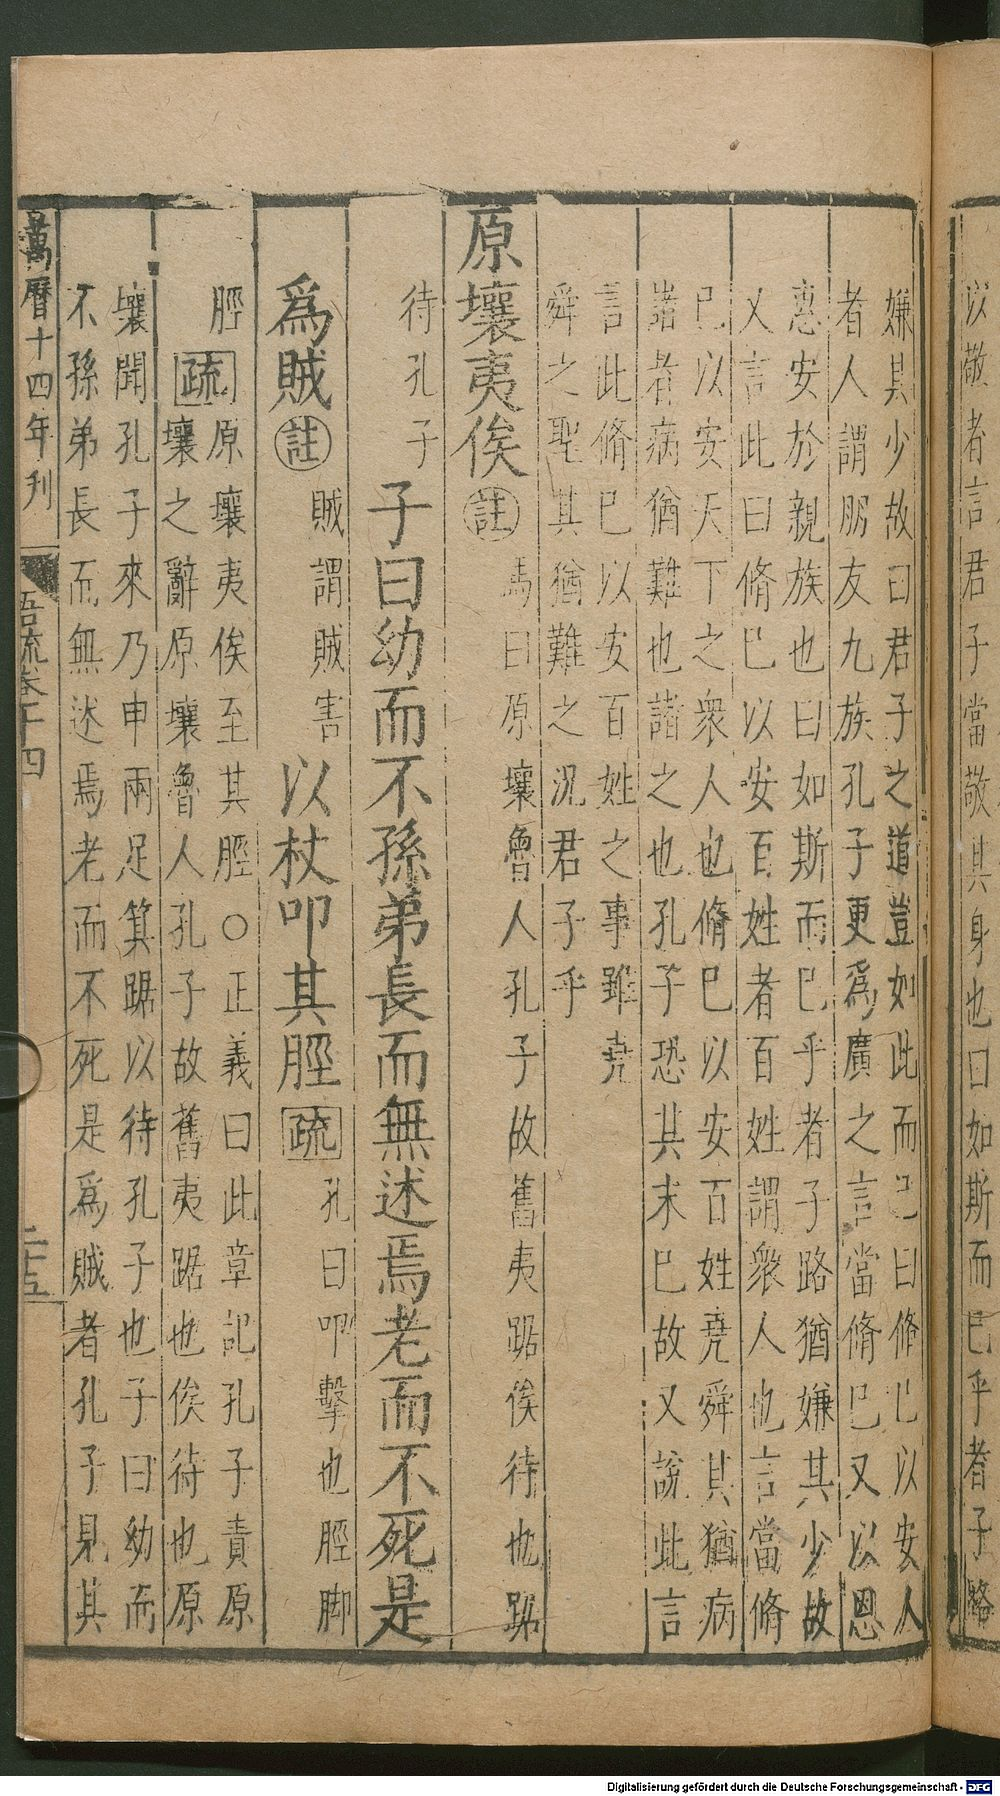 嫌其少故曰君子之道豈如此而已曰脩已以安人
者人謂朋友九族孔子更爲廣之言當脩已又以恩
惠安於親族也曰如斯而已乎者子路猶嫌其少故
又言此曰脩已以安百姓者百姓謂衆人也言當脩
已以安天下之衆人也脩已以安百姓堯舜其猶病
諸者病猶難也諸之也孔子恐其未已故又說此言
言此脩已以安百姓之事雖堯
舜之聖其猶難之況君子乎
原壤夷俟註馬曰原壤魯人孔子故舊夷踞俟待也踞
待孔子
子曰幼而不孫弟長而無述焉老而不死是
爲賊註賊謂賊害以杖叩其脛疏孔曰叩擊也脛脚
脛疏原壤夷俟至其脛○正義曰此章記孔子責原
壤之辭原壤魯人孔子故舊夷踞也俟待也原
壤聞孔子來乃申兩足箕踞以待孔子也子曰幼而
不孫弟長而無述焉老而不死是爲賊者孔子見其
萬曆十四年刊
語疏卷十四
二十五
以敬者言君子當敬其身也曰如斯而已乎者子路
Digitalisierung gefördert durch die Deutsche Forschungsgemeinschaft - DFG